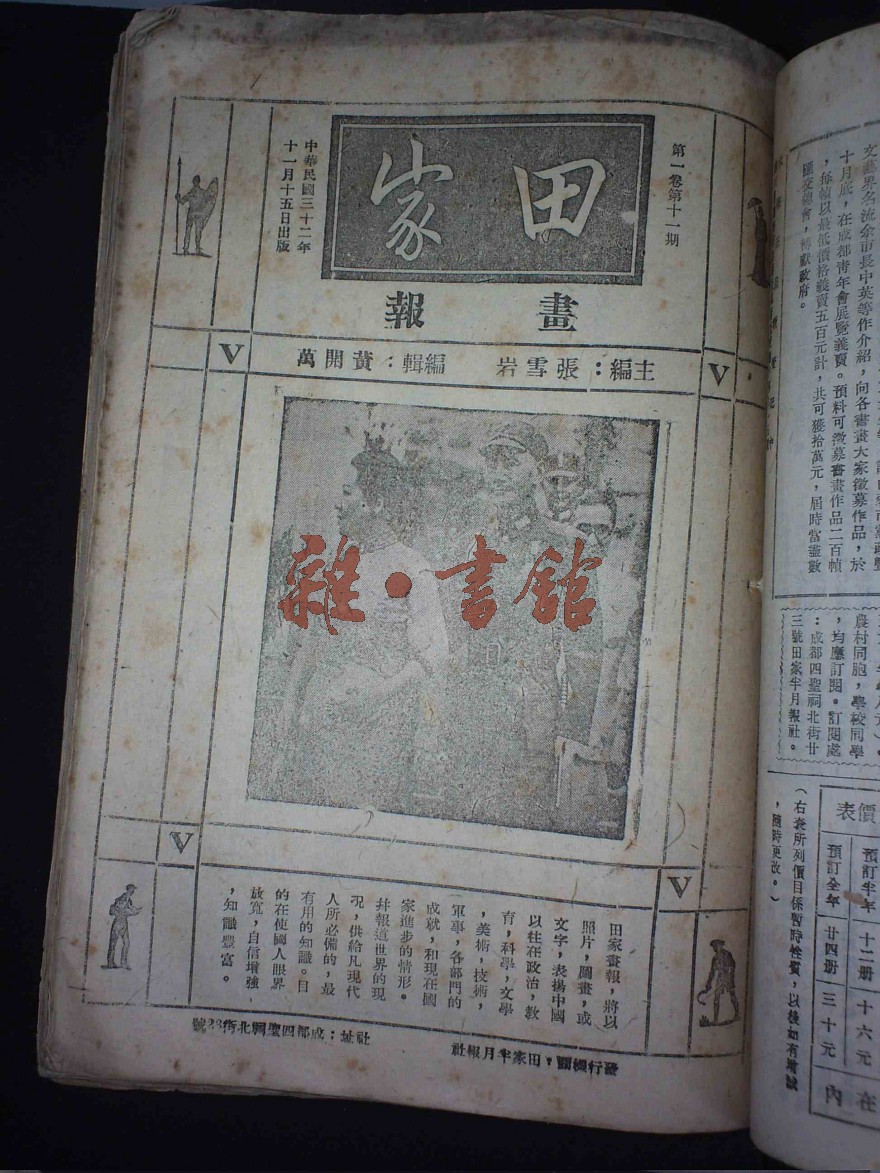 第一卷第十一期
田家
畫報
中華民國三十二年
十一月十五日出版
主編：張雪岩　編輯：黃開萬
V
V
雜·書館
V
V
田家畫報，將以
照片，圖畫，或
文字，表揚中國
以往在政治，教
育，科學，文學
，美術，技術，
軍事，各部門的
成就，和現在國
家進步的情形。
幷報道世界的現
況，供給凡現代
人所必備的，最
有用的知識。目
的在使國人眼界
放寬，自信增強
，知識豐富。
發行機關，田家半月報社
社址；成都四聖祠北街23號
文藝界名流余市長中英等作介紹，向各書畫大家徵募作品，於
十月底，在成都青年會展覽義賣。預料可徵募書畫作品二百幀
，每幀以最低價格義賣五百元計，共可獲拾萬元，屆時當盡數
，轉獻政府。
農村同胞，學校同學
，均應訂閱。訂閱處
：成都四聖祠北街廿
三號田家半月報社。
價表
預訂半年 十二册 十六元
預訂全年 廿四册 三十元
在內
（右表所列價目係暫時性質，以後如有增減
，隨時更改。）